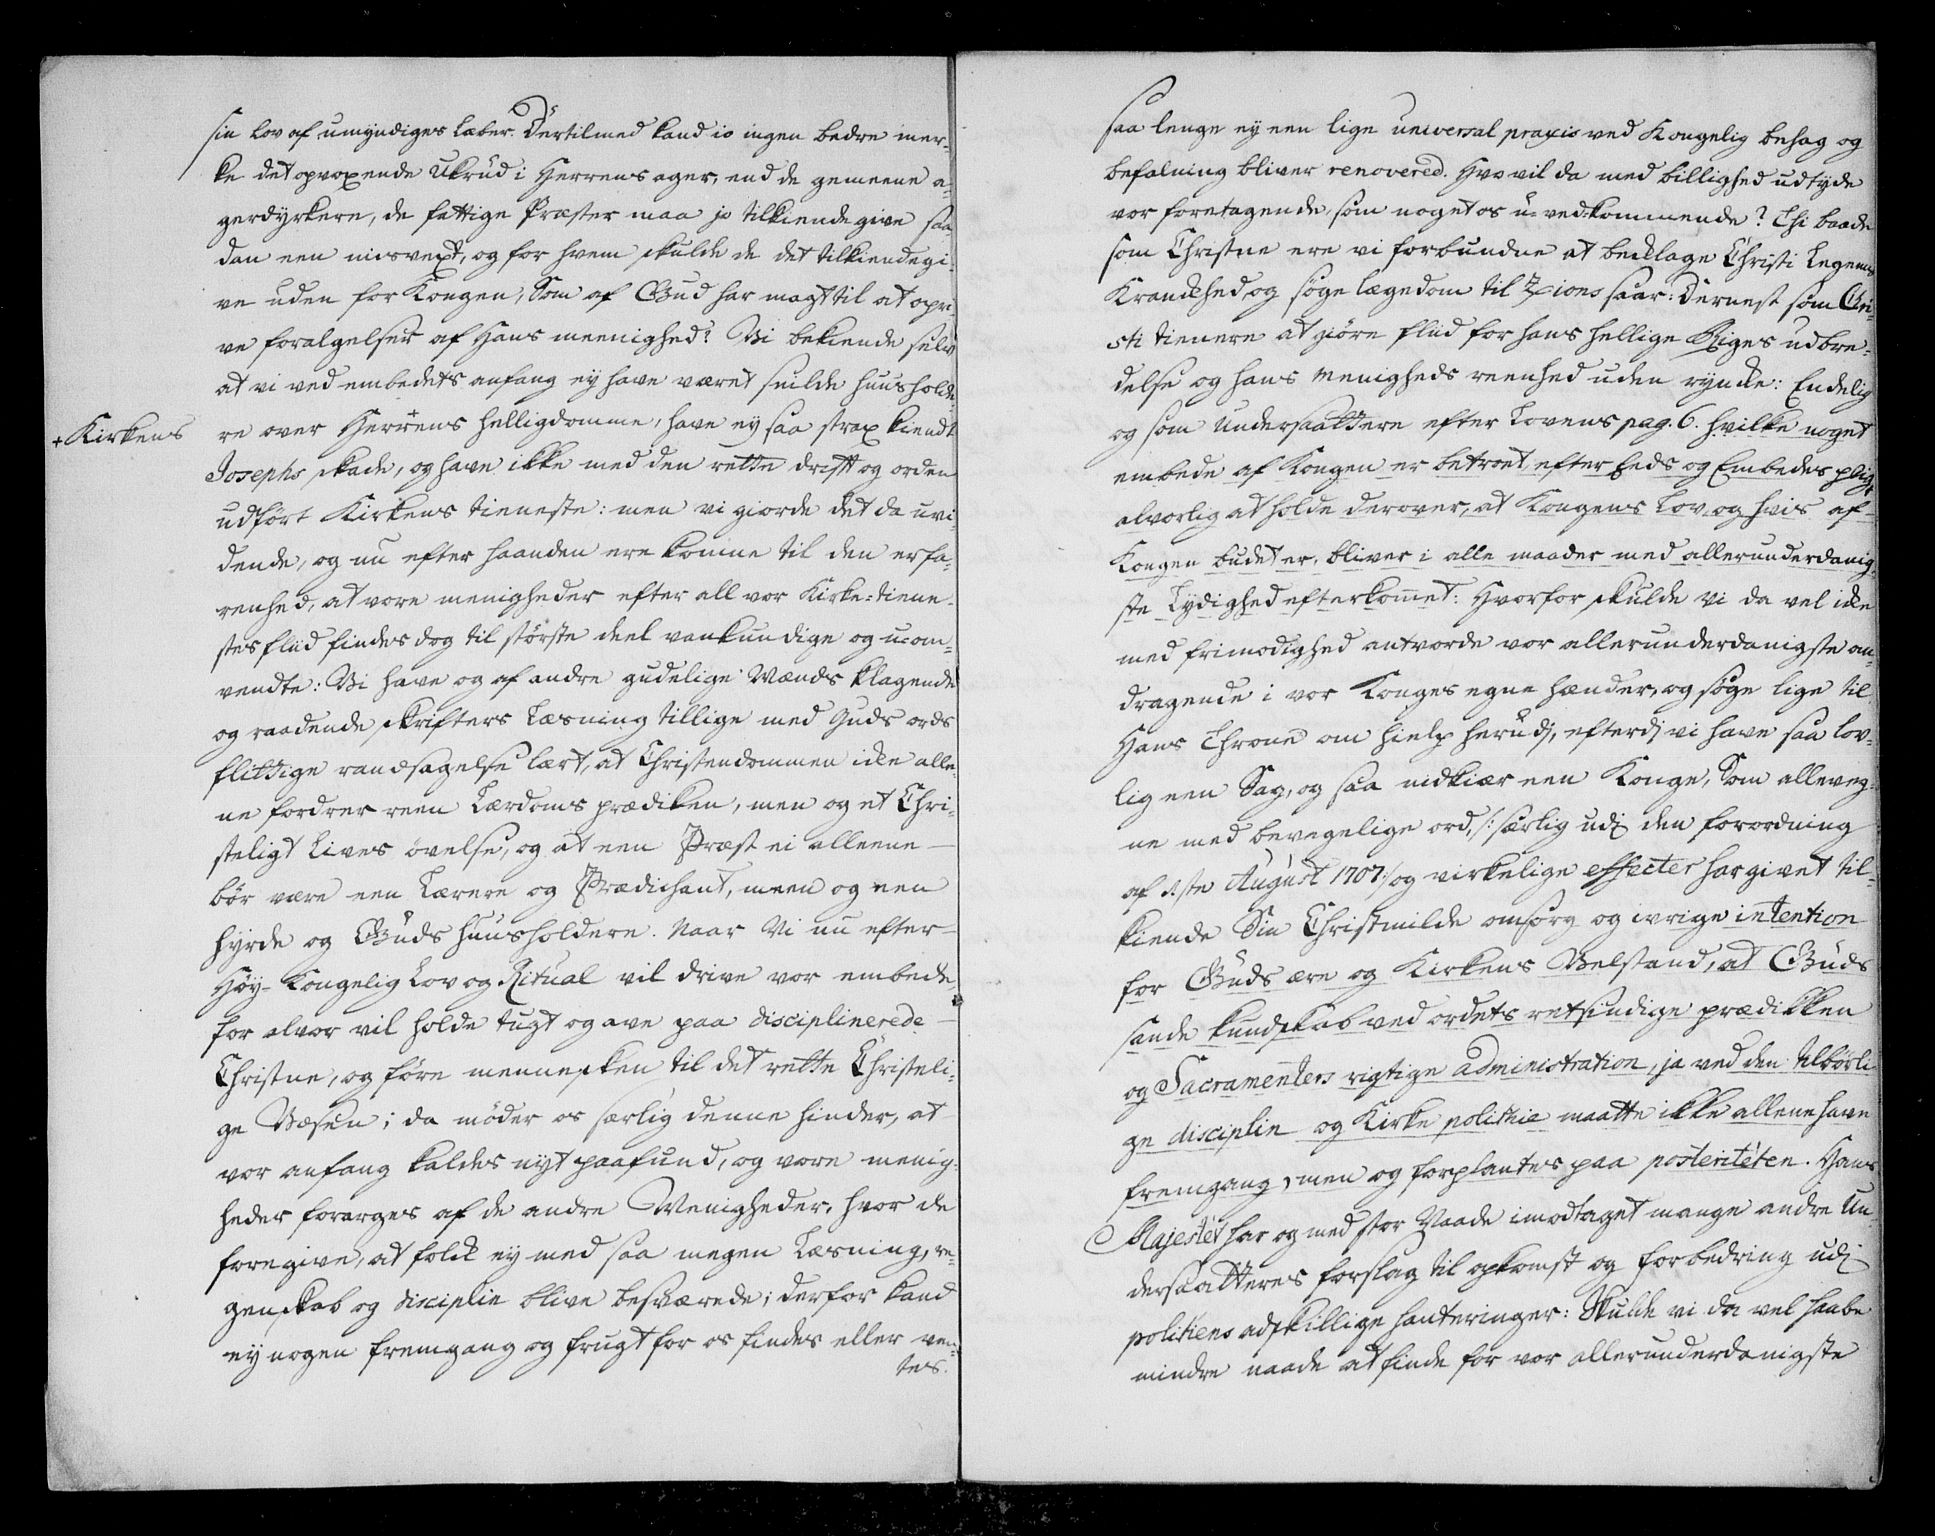 sin Lov af umyndiges Læber. Dertilmed kand jo ingen bedre mer-
ke det opvoxende Ukrud i Herrens ager, end de gemeene a-
gerdyrkere, de fattige Præster maa jo tilkiendegive saa
dan een misvext, og for hvem skulde de det tilkiendegi-
ve uden for Kongen, Som af Gud har magt til at opri-
ve foralgelser af Hans meenighed? Vi bekiende selv
at vi ved embedets anfang ey have været snilde huusholde
re over Herrens + helligdomme, have ey saa strax kiendt
+ Kirkens
Josephs skade, og have ikke med den rette drift og orden
udført Kirkens tieneste: men vi giorde det da uvi-
dende, og nu efter haanden ere komne til den erfa-
renhed, at vore menigheder efter all vor Kirke-tiene-
stes fliid findes dog til største deel vankundige og u-om-
vendte: Vi have og af andre gudelige Mænds klagende
og raadende skrifters Læsning tillige med Guds ords
flittige randsagelse lært, at Christendommen icke alle-
ne fordrer reen Lærdoms prædiken, men og et Chri-
steligt Lives øvelse, og at een Præst ei alleene
bør være een Lærere og Prædichant, meen og een
hyrde og Guds huusholdere. Naar Vi nu efter
Høy-Kongelig Lov og Ritual vil drive vor embede
for alvor vil holde tugt og ave paa disciplinerede
Christne, og føre mennesken til det rette Christeli-
ge Væsen; da møder os særlig denne hinder, at
vor anfang kaldes nyt paafund, og vore menig-
heder forarges af de andre Menigheder, hvor de
foregive, at folck ey med saa megen Læsning, re-
genskab og disciplin blive besværede; derfor kand
ey nogen fremgang og frugt for os findes eller ven-
tes.
saa lenge ey een lige universal praxis ved Kongelig behag og
befalning bliver renovered. Hvo vil da med billighed udtyde
vor foretagende, som noget os u-ved-kommende? Thi baade
som Christne ere vi forbundne at becklage Christi Legems
Kranckhed, og søge lægedom til Zions saar: Dernest som Chri-
sti tienere at giøre fliid for hans hellige Riges udbre-
delse og hans menigheds reenhed uden ryncke: Endelig
og som Undersaattere efter Lovens pag. 6. hvilke noget
embede af Kongen er betroet, efter Eeds og Embedes pligt
alvorlig at holde derover, at Kongens Lov, og hvis af
Kongen budet er, bliver i alle maader med allerunderdanig-
ste Lydighed efterkommet: Hvorfor skulde vi da vel icke
med frimodighed antvorde vor allerunderdanigste an-
dragende i vor Konges egne hænder, og søge lige til
Hans Throne om hielp herudj, efterdj vi have saa lov-
lig een Sag, og saa nidkiær een Konge, Som alleveg-
ne med bevegelige ord, /: særlig udj den forordning
af 1ste August 1707 :/ og virkelige effecter har givet til-
kiende Sin Christmilde omsorg og ivrige intention
for Guds ære og Kirkens Velstand, at Guds
sande kundskab ved ordets retsindige prædikken
og Sacramenters rigtige administration, ja ved den tilbørli-
ge disciplin og Kirke politie maatte ikke allene have
fremgang, men og forplantes paa posteriteten. Hans
Majestet har og med stor Naade imodtaget mange andre Un-
dersaatteres forslag til opkomst og forbedring udj
politiens adskillige hanteringer: Skulde vi da vel haabe
mindre naade at finde for vor allerunderdanigste